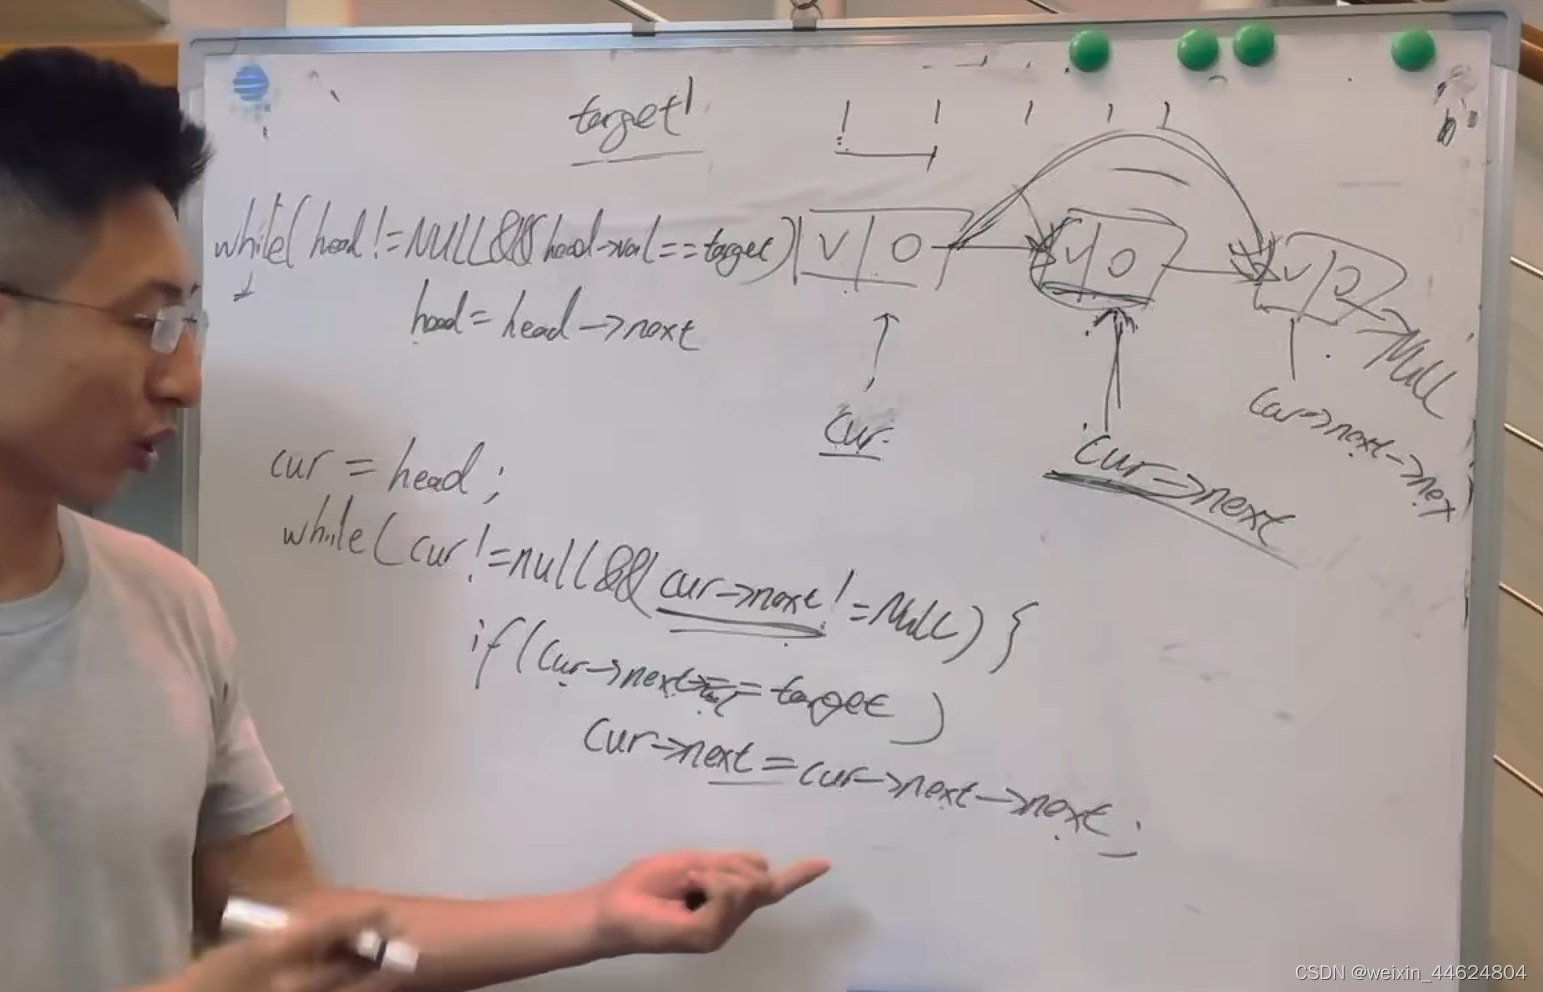 target 1
1 1 1 1 1
while(head!=NULL&&head->val==target)
head=head->next
V 0
V 0
V 0
Null
cur
cur->next
cur->next->nex
cur=head;
while(cur!=null&&cur->next!=Null){
if(cur->next->val==target)
cur->next=cur->next->next;
CSDN @weixin_44624804